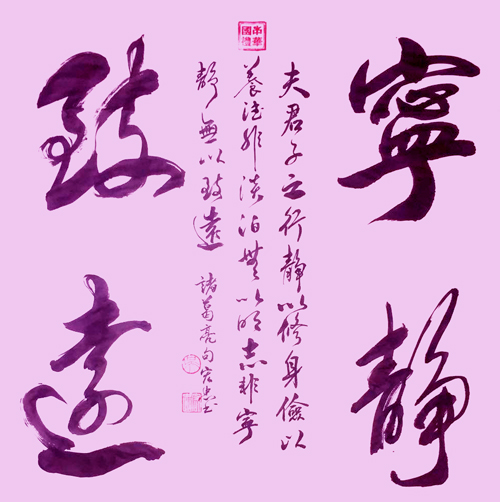 寧靜
致遠
中華國禮
夫君子之行靜以修身儉以
養德非淡泊無以明志非寧
靜無以致遠
諸葛亮句